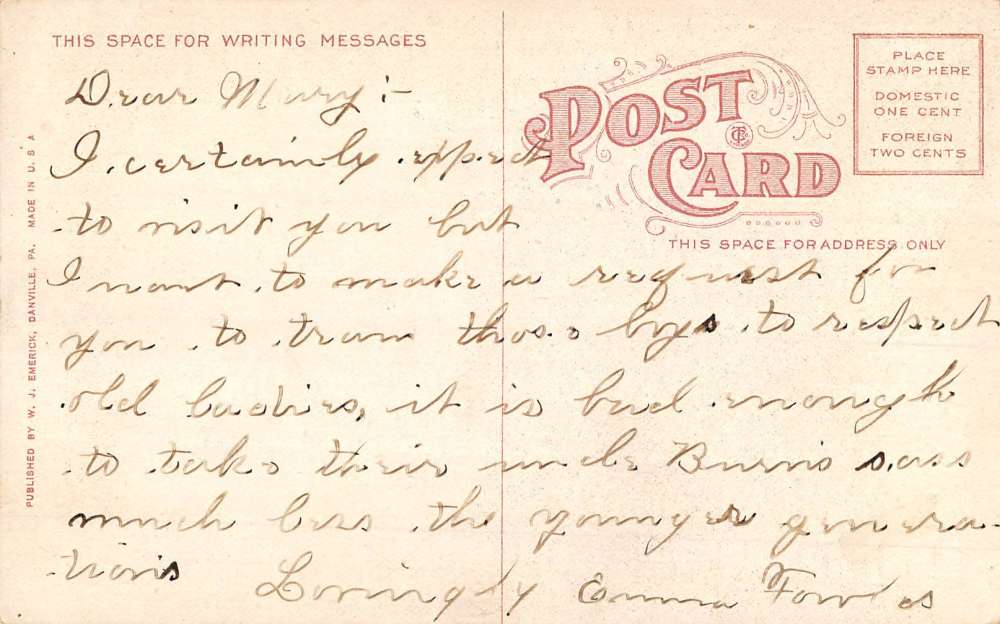 THIS SPACE FOR WRITING MESSAGES
Dear Mary :-
I certainly expect
to visit you but
I want to make a request for
you to train those boys to respect
old ladies, it is bad enough
to take their uncle Burnis sass
much less the younger genera-
tions
Lovingly Emma Fowles
POST CARD
THIS SPACE FOR ADDRESS ONLY
PLACE
STAMP HERE
DOMESTIC
ONE CENT
FOREIGN
TWO CENTS
PUBLISHED BY W. J. EMERICK, DANVILLE, PA. MADE IN U. S. A